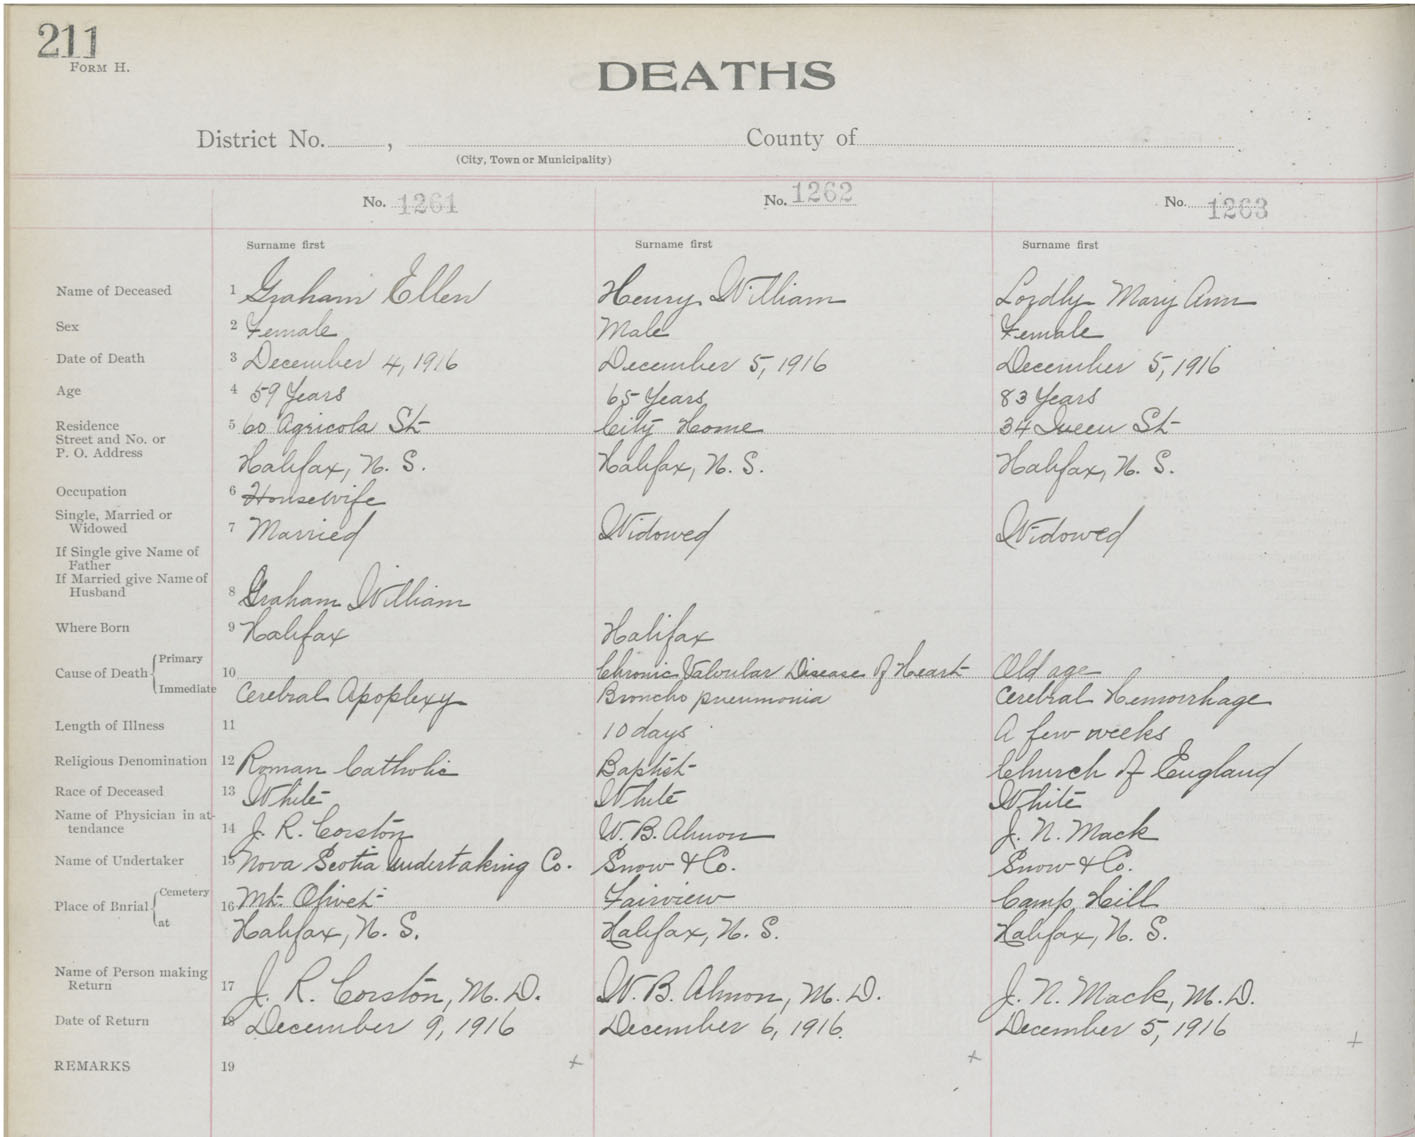 211
FORM H.
DEATHS
District No. , County of
(City, Town or Municipality)
No. 1261 No. 1262 No. 1263
Surname first Surname first Surname first
Name of Deceased 1 Graham Ellen Henry William Lordly Mary Ann
Sex 2 Female Male Female
Date of Death 3 December 4, 1916 December 5, 1916 December 5, 1916
Age 4 59 Years 65 Years 83 Years
Residence 5 60 Agricola St City Home 34 Queen St
Street and No. or
P. O. Address Halifax, N. S. Halifax, N. S. Halifax, N. S.
Occupation 6 Housewife
Single, Married or
Widowed 7 Married Widowed Widowed
If Single give Name of
Father
If Married give Name of
Husband 8 Graham William
Where Born 9 Halifax Halifax
Cause of Death Primary 10 Chronic Valvular Disease of Heart Old age
Immediate Cerebral Apoplexy Broncho pneumonia Cerebral Hemorrhage
Length of Illness 11 10 days A few weeks
Religious Denomination 12 Roman Catholic Baptist Church of England
Race of Deceased 13 White White White
Name of Physician in at-
tendance 14 J. R. Corston W. B. Almon J. N. Mack
Name of Undertaker 15 Nova Scotia Undertaking Co. Snow & Co. Snow & Co.
Place of Burial Cemetery 16 Mt. Olivet Fairview Camp Hill
at Halifax, N. S. Halifax, N. S. Halifax, N. S.
Name of Person making
Return 17 J. R. Corston, M. D. W. B. Almon, M. D. J. N. Mack, M. D.
Date of Return 18 December 9, 1916 December 6, 1916 December 5, 1916
REMARKS 19 + + +